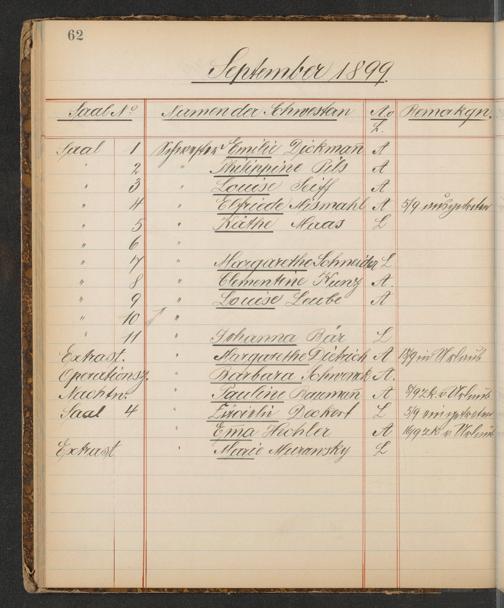 62
September 1899
Saal No Namen der Schwestern A o L. Bemerkgn.
Saal 1 Schwester Emilie Dickmann A
" 2 " Philippine Pils A
" 3 " Louise Seiff A
" 4 " Elfriede Mismahl A 5/9 eingetreten
" 5 " Käthe Maas L
" 6 "
" 7 " Margarethe Schneider L
" 8 " Clementine Kunz A.
" 9 " Louise Leube A
" 10 "
" 11 " Johanna Bär L
Extrast. " Margarethe Dietrich A in Urlaub
Operationsz. " Barbara Schwenk A.
Nachtw. " Pauline Baumann A zk. v. Urlaub
Saal 4 " Deckert L 5/9 eingetreten
" Ema Hechler A zk. v. Urlaub
Extrast " Marie Muransky L